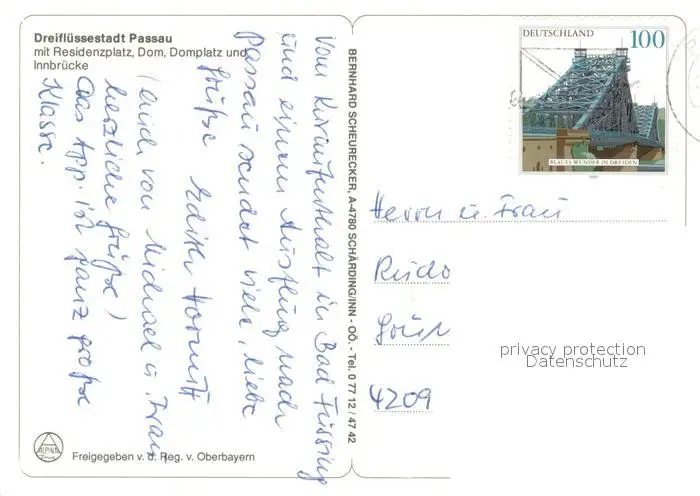 Dreiflüssestadt Passau
mit Residenzplatz, Dom, Domplatz und
Innbrücke
Vom Kuraufenthalt in Bad Füssing
und einem Ausflug nach
Passau sendet viele, liebe
Grüße Edith
(auch von Michael u. Frau
herzliche Grüße)
Das App. ist ganz große
Klasse.
Freigegeben v. d. Reg. v. Oberbayern
ALPINA
BERNHARD SCHEURECKER, A-4780 SCHÄRDING/INN - OÖ. - Tel. 0 77 12 / 47 42
DEUTSCHLAND 100
BLAUES WUNDER IN DRESDEN
Herrn u. Frau
4209
privacy protection
Datenschutz